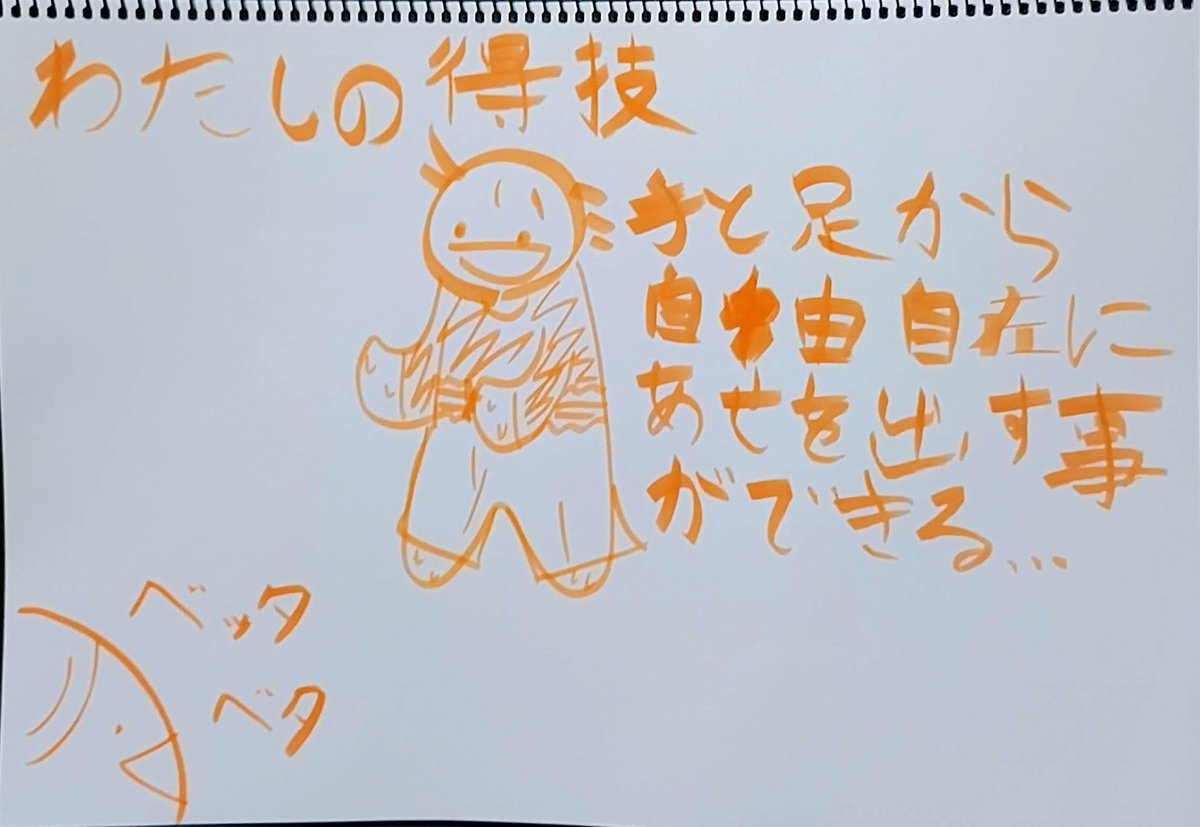 わたしの得技
手と足から
自由自在に
あせを出す事
ができる...
ベッタ
ベタ